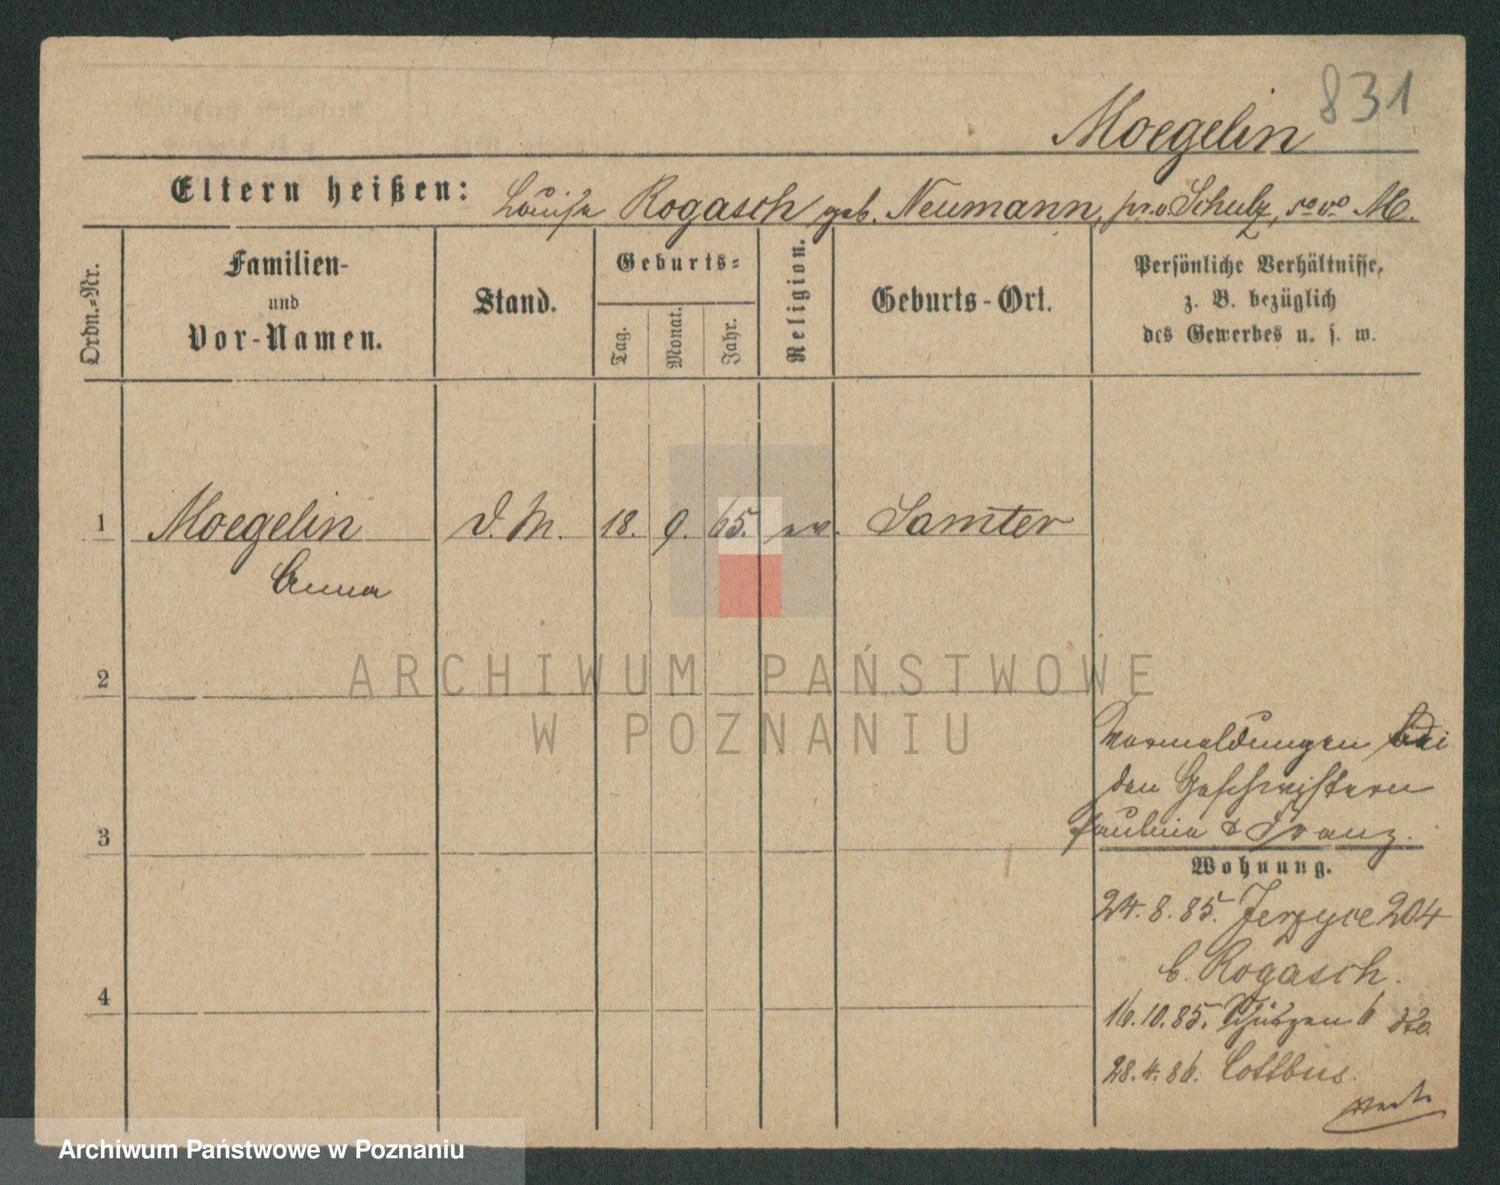 831
Moegelin
Eltern heißen: Louise Rogasch geb. Neumann, Schulz, M.
Ordn.-Nr.
Familien-
und
Vor-Namen.
Stand.
Geburts-
Tag.
Monat.
Jahr.
Religion.
Geburts-Ort.
Persönliche Verhältnisse,
z. B. bezüglich
des Gewerbes u. s. w.
1 Moegelin D. M. 18. 9. 65. ev. Samter
Anna
2
ARCHIWUM PAŃSTWOWE
W POZNANIU
3
4
Vermeldungen bei
den Geschwistern
Paulina & Franz.
Wohnung.
24. 8. 85. Jerzyce 204
b. Rogasch.
16. 10. 85. Schützen 6 dto.
28. 4. 86. Cottbus.
Archiwum Państwowe w Poznaniu